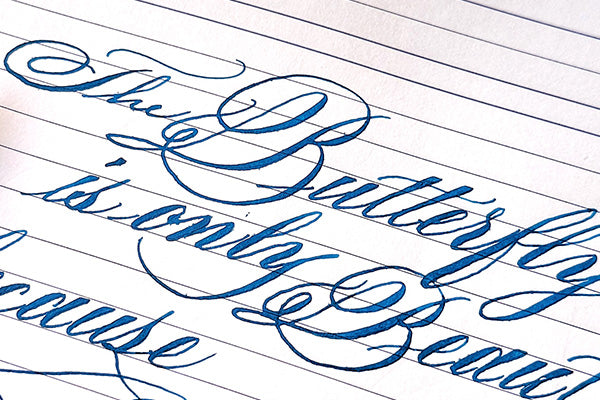 The Butterfly
is only Beaut
cause